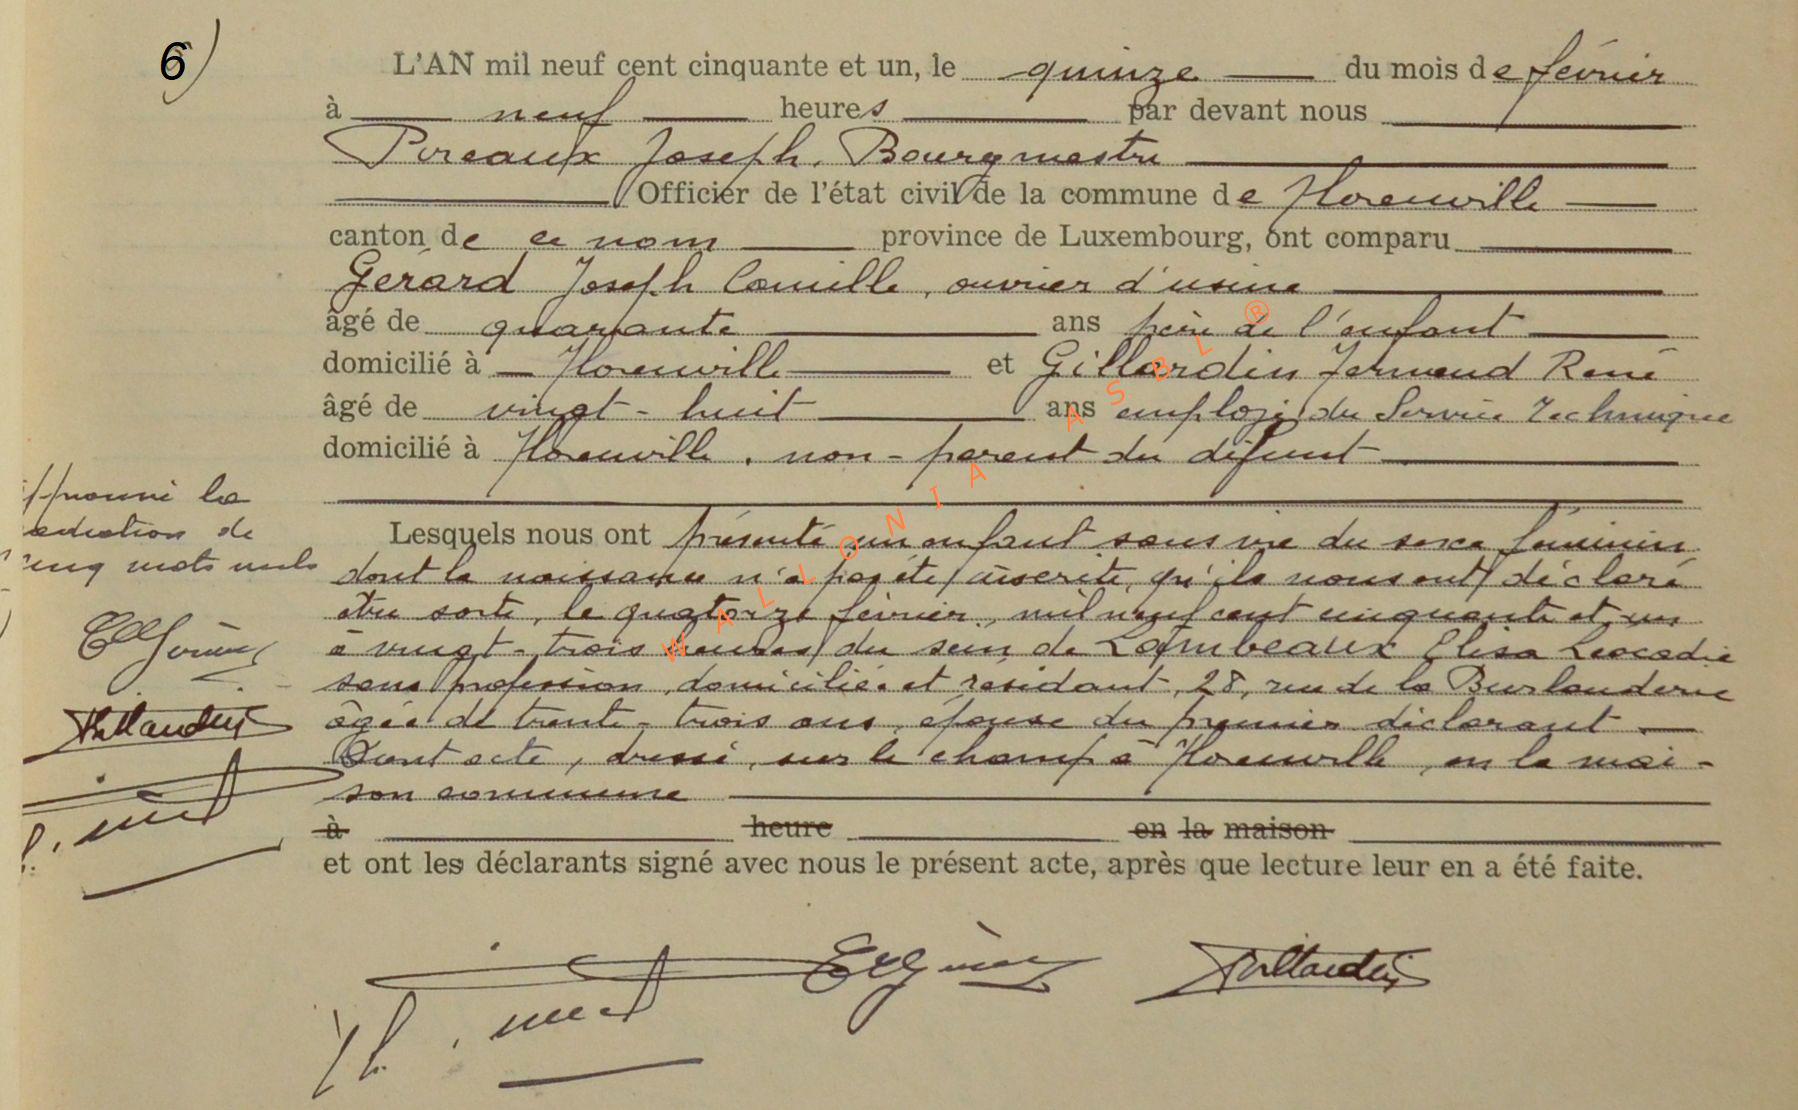 6)
L'AN mil neuf cent cinquante et un, le quinze du mois de février
à neuf heures par devant nous
Pireaux Joseph, Bourgmestre
Officier de l'état civil de la commune de Florenville
canton de ce nom province de Luxembourg, ont comparu
Gérard Joseph Camille, ouvrier d'usine
âgé de quarante ans père de l'enfant
domicilié à Florenville et Gillardin Fernand René
âgé de vingt-huit ans employé du Service Technique
domicilié à Florenville, non-parent du défunt
Lesquels nous ont présenté un enfant sans vie du sexe féminin
dont la naissance n'a pas été inscrite, qu'ils nous ont déclaré
être sorti, le quatorze février, mil neuf cent cinquante et un
à vingt-trois heures du sein de Lambeaux Elisa Léocadie
sans profession, domiciliée et résidant, 28, rue de la
âgée de trente-trois ans, épouse du premier déclarant
Dont acte, dressé, sur le champ à Florenville, en la mai-
son commune
à heure en la maison
et ont les déclarants signé avec nous le présent acte, après que lecture leur en a été faite.
pprouvé la
de
cinq mots nuls
WALLONIA ASBL ®